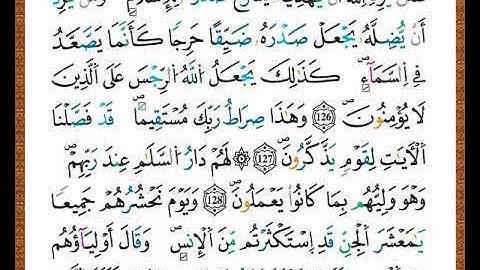 أَنْ يُضِلَّهُۥ يَجْعَلْ صَدْرَهُۥ ضَيِّقًا حَرِجًا كَأَنَّمَا يَصَّعَّدُ
فِي اِ۬لسَّمَآءِۖ كَذَٰلِكَ يَجْعَلُ اُ۬للَّهُ اُ۬لرِّجْسَ عَلَى اَ۬لَّذِينَ
لَا يُؤْمِنُونَۖ 126 وَهَٰذَا صِرَٰطُ رَبِّكَ مُسْتَقِيمًاۖ قَدْ فَصَّلْنَا
اَ۬لْأٓيَٰتِ لِقَوْمٍ يَذَّكَّرُونَۖ 127 ۞ لَهُمْ دَارُ اُ۬لسَّلَٰمِ عِندَ رَبِّهِمْۖ
وَهْوَ وَلِيُّهُم بِمَا كَانُواْ يَعْمَلُونَۖ 128 وَيَوْمَ نَحْشُرُهُمْ جَمِيعًا
يَٰمَعْشَرَ اَ۬لْجِنِّ قَدِ اِ۪سْتَكْثَرْتُم مِّنَ اَ۬لْإِنسِۖ وَقَالَ أَوْلِيَآؤُهُم